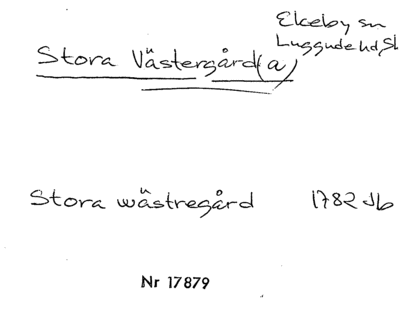 Ekeby sn
Luggude hd, Sk
Stora Västergård(a)
Stora wästregård 1782 Jb
Nr 17879